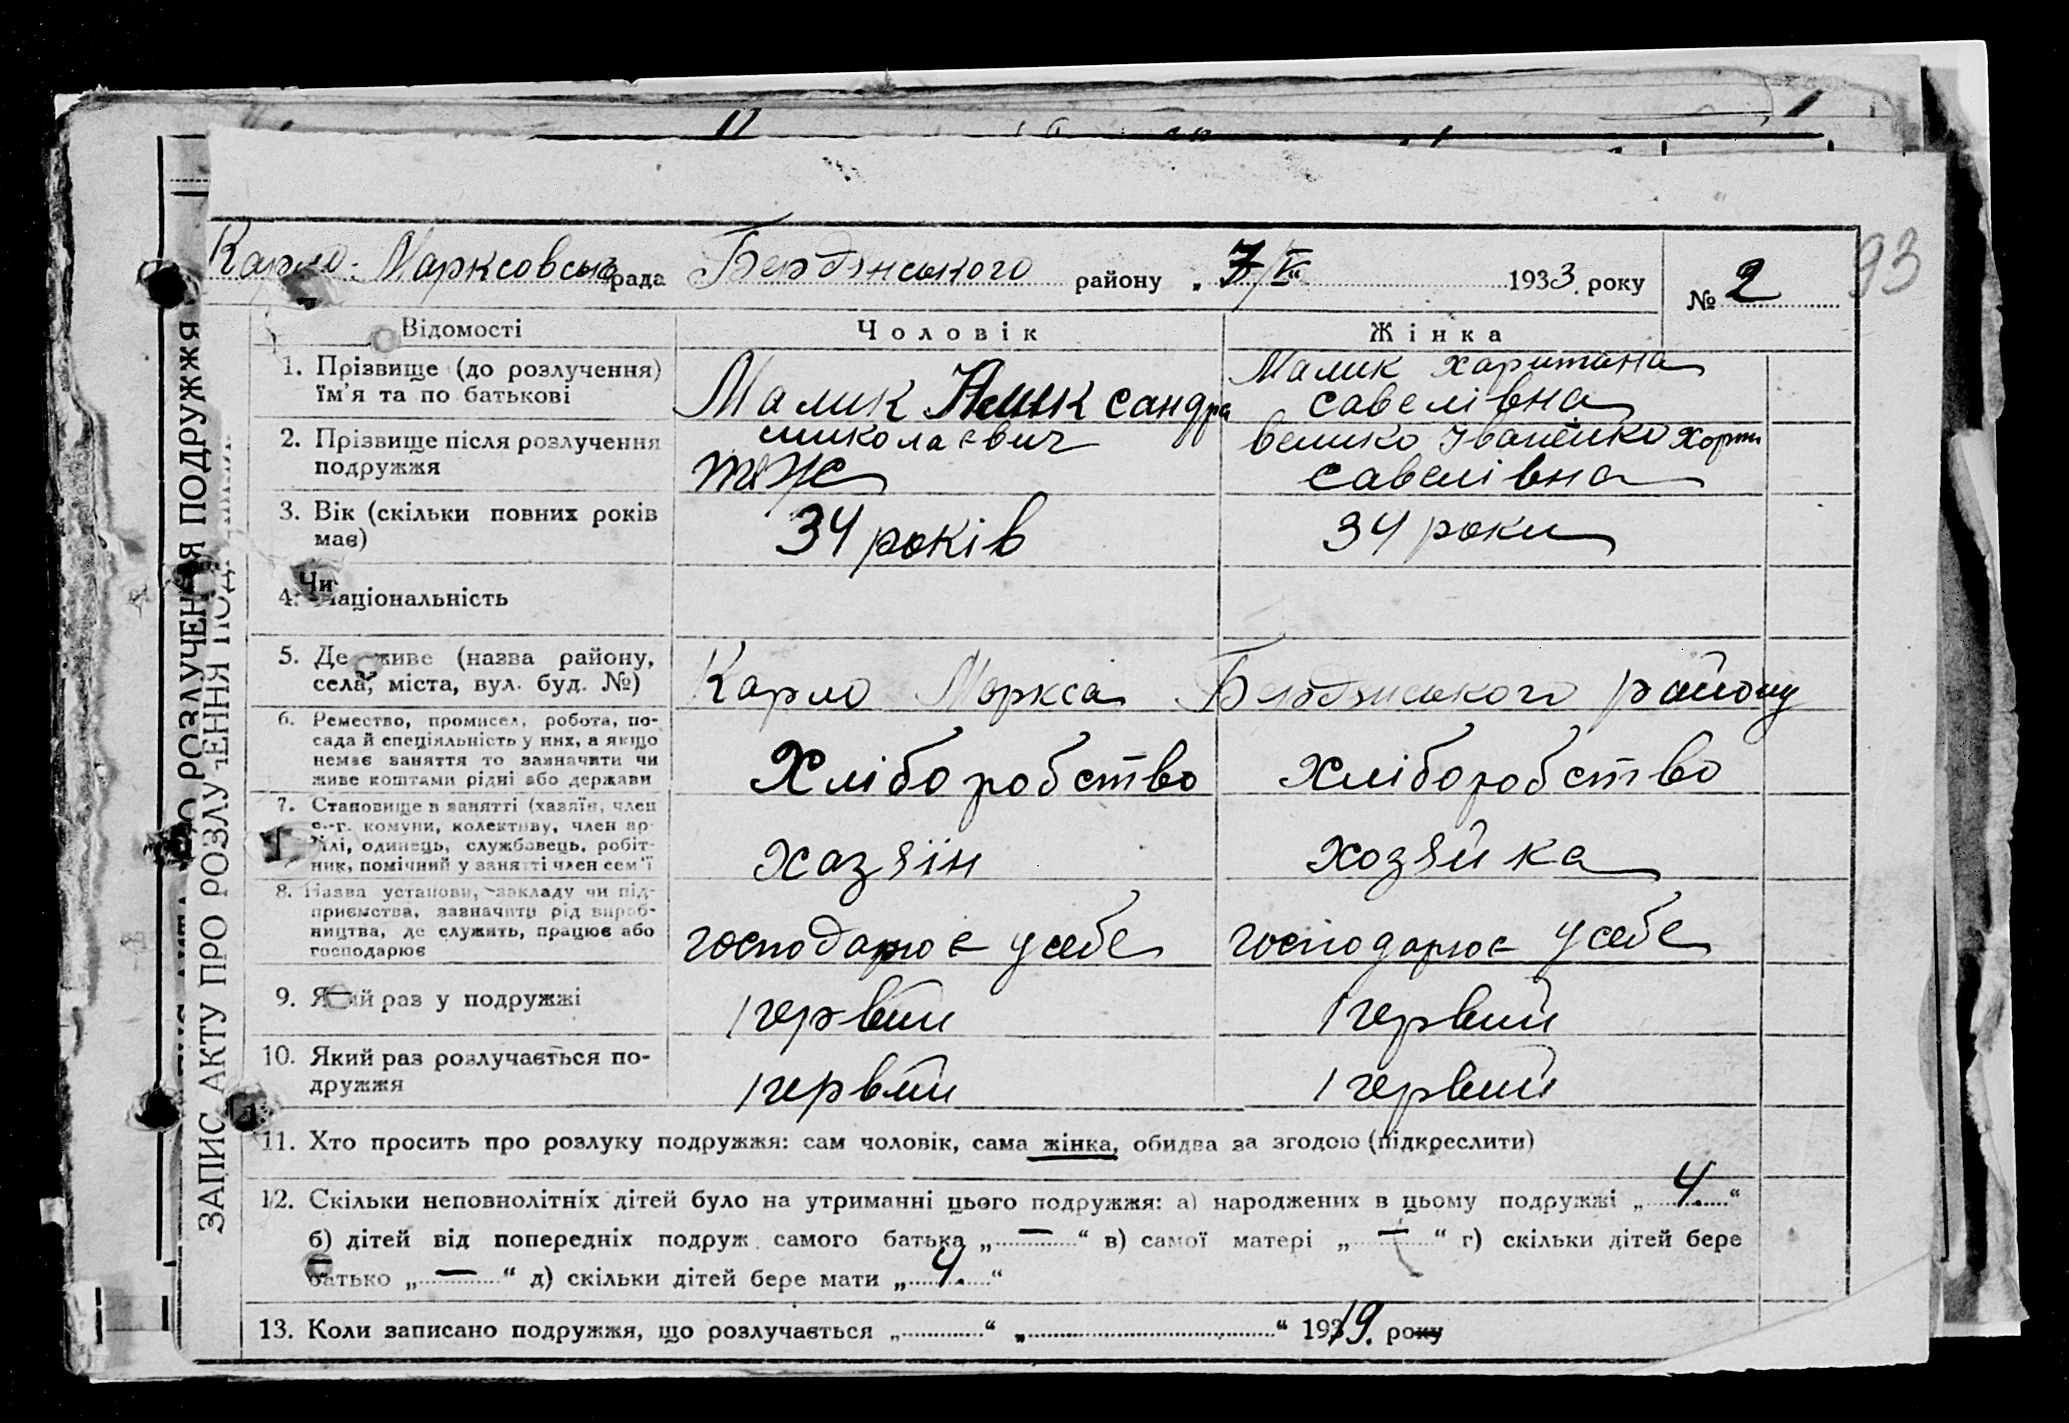 93
Карло-Марксовська рада Бердянського району „7/V“ 1933 року № 2
ЗАПИС АКТУ ПРО РОЗЛУЧЕННЯ ПОДРУЖЖЯ
Відомості Чоловік Жінка
1. Прізвище (до розлучення) Малик Харитина
їм'я та по батькові Малик сандра савелівна
2. Прізвище після розлучення миколаєвич Велико Іваненко Хорти
подружжя теж савелівна
3. Вік (скільки повних років 34 років 34 роки
має)
4. Національність
5. Де живе (назва району, Карло Моркса Бердянського району
села, міста, вул. буд. №)
6. Ремество, промисел, робота, по-
сада й спеціяльність у них, а якщо
немає заняття то зазначити чи Хліборобство Хліборобство
живе коштами рідні або держави
7. Становище в занятті (хазяїн, член
с.-г. комуни, колективу, член ар-
тілі, одинець, службовець, робіт- хозяїн хозяйка
ник, помічний у занятті член сем'ї
8. Назва установи, закладу чи під-
приємства, зазначити рід вироб-
ництва, де служить, працює або господарює у себе господарює у себе
господарює
9. Який раз у подружжі 1 первий 1 первий
10. Який раз розлучається по- 1 первий 1 первий
дружжя
11. Хто просить про розлуку подружжя: сам чоловік, сама жінка, обидва за згодою (підкреслити)
12. Скільки неповнолітніх дітей було на утриманні цього подружжя: а) народжених в цьому подружжі „4“
б) дітей від попередніх подруж самого батька „—“ в) самої матері „—“ г) скільки дітей бере
батько „—“ д) скільки дітей бере мати „4“
13. Коли записано подружжя, що розлучається „......“ „......“ 1919. року